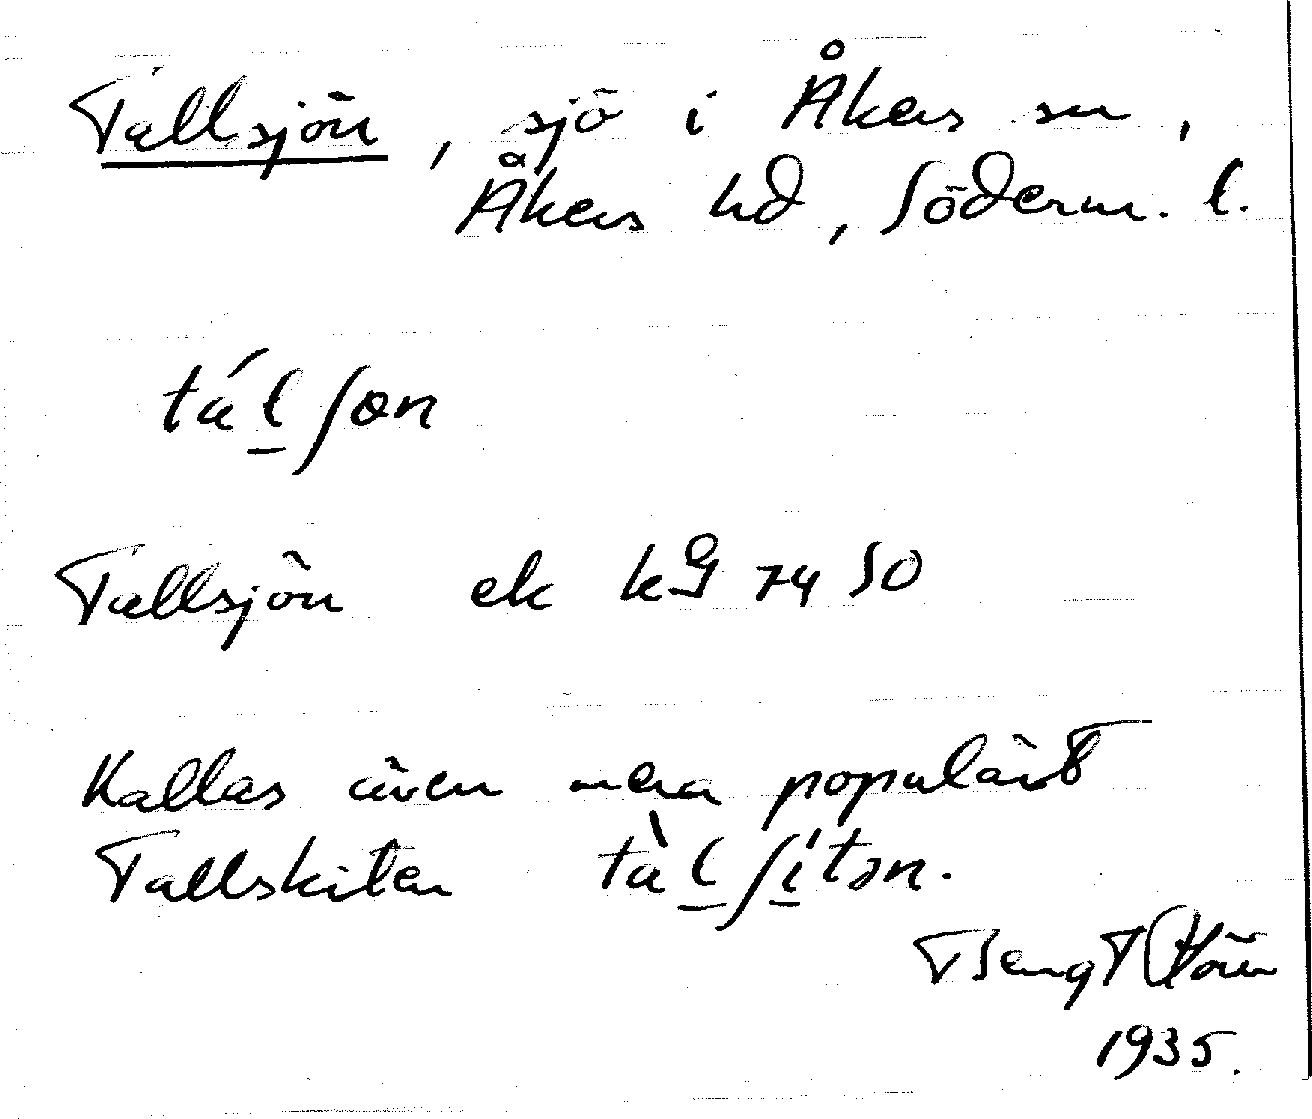 Tallsjön, sjö i Åkers sn,
Åkers hd, Söderm. l.
tá l̲ ʃøn
Tallsjön ek kg 74 SO
Kallas även mera populärt
Tallskiten tà l̲ ʃí̲tən.
Bengt
1935.